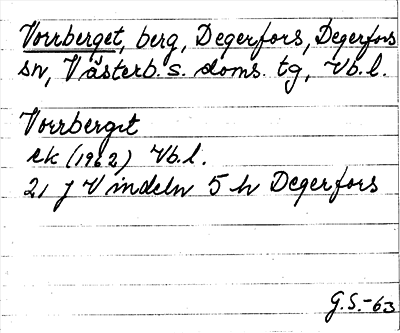 Vorrberget, berg, Degerfors, Degerfors
sn, Västerb. s. doms. tg, Vb. l.
Vorrberget
ek (1962) Vb. l.
21 J Vindeln 5 h Degerfors
G.S.-63